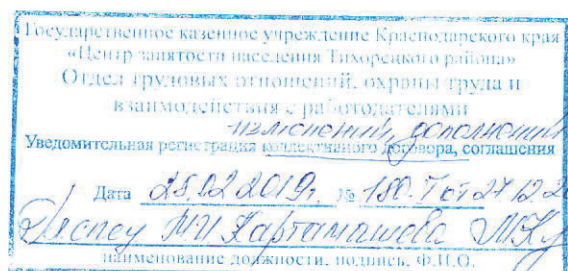 Государственное казенное учреждение Краснодарского края
«Центр занятости населения Тихорецкого района»
Отдел трудовых отношений, охраны труда и
взаимодействия с работодателями
изменений, дополнений
Уведомительная регистрация коллективного договора, соглашения
Дата 28.02.2019г. № 180-Т от 27.12.2
Картамышева
наименование должности, подпись, Ф.И.О.